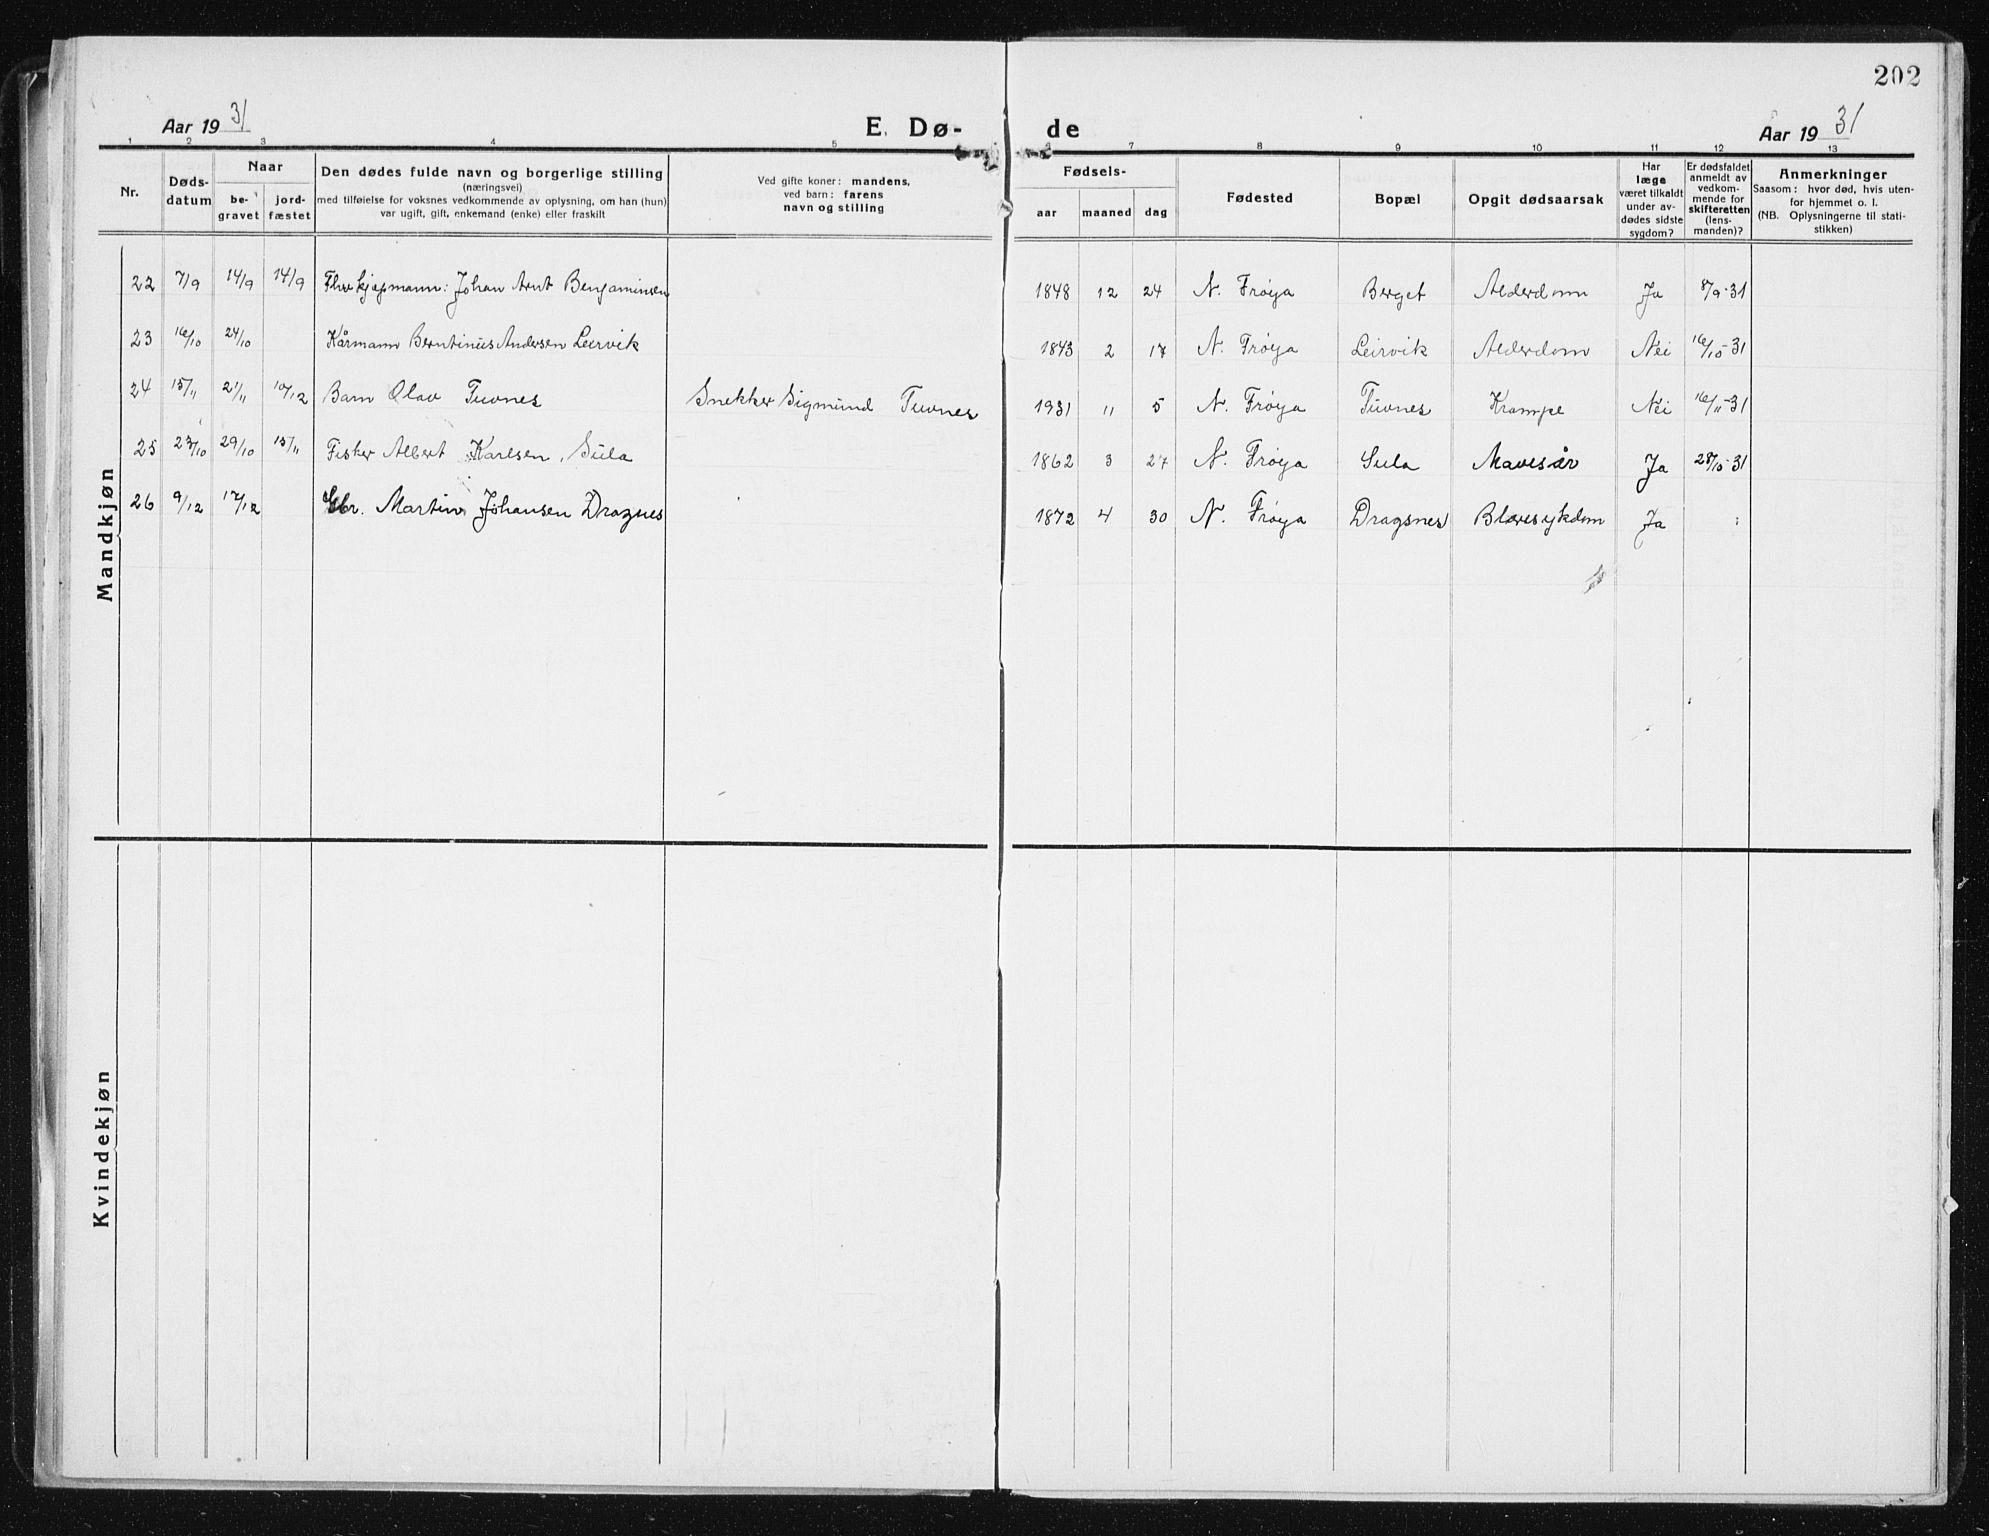 202
Aar 1931 E. Dø- de Aar 1931
1 2 3 4 5 6 7 8 9 10 11 12 13
Nr. Døds-datum Naar be-gravet jord-fæstet Den dødes fulde navn og borgerlige stilling (næringsvei) med tilføielse for voksnes vedkommende av oplysning, om han (hun) var ugift, gift, enkemand (enke) eller fraskilt Ved gifte koner: mandens, ved barn: farens navn og stilling Fødsels- aar maaned dag Fødested Bopæl Opgit dødsaarsak Har læge været tilkaldt under av-dødes sidste sygdom? Er dødsfaldet anmeldt av vedkom-mende for skifteretten (lens-manden)? Anmerkninger Saasom: hvor død, hvis uten-for hjemmet o. l. (NB. Oplysningerne til stati-stikken)
Mandkjøn
22 7/9 14/9 14/9 Johan Arnt Benjaminsen 1848 12 24 N. Frøya Berget Alderdom Ja 8/9-31
23 16/10 24/10 Kårmann Berntinus Andersen Leirvik 1843 2 17 N. Frøya Leirvik Alderdom Nei 16/10-31
24 15/11 21/11 10/12 Barn Olav Tuvnes Snekker Sigmund Tuvnes 1931 11 5 N. Frøya Tuvnes Krampe Nei 16/11-31
25 23/10 29/10 15/11 Fisker Albert Karlsen, Sula 1862 3 27 N. Frøya Sula Mavesår Ja 28/10-31
26 9/12 17/12 Gbr. Martin Johansen Dragnes 1872 4 30 N. Frøya Dragsnes Blæresykdom Ja
Kvindekjøn